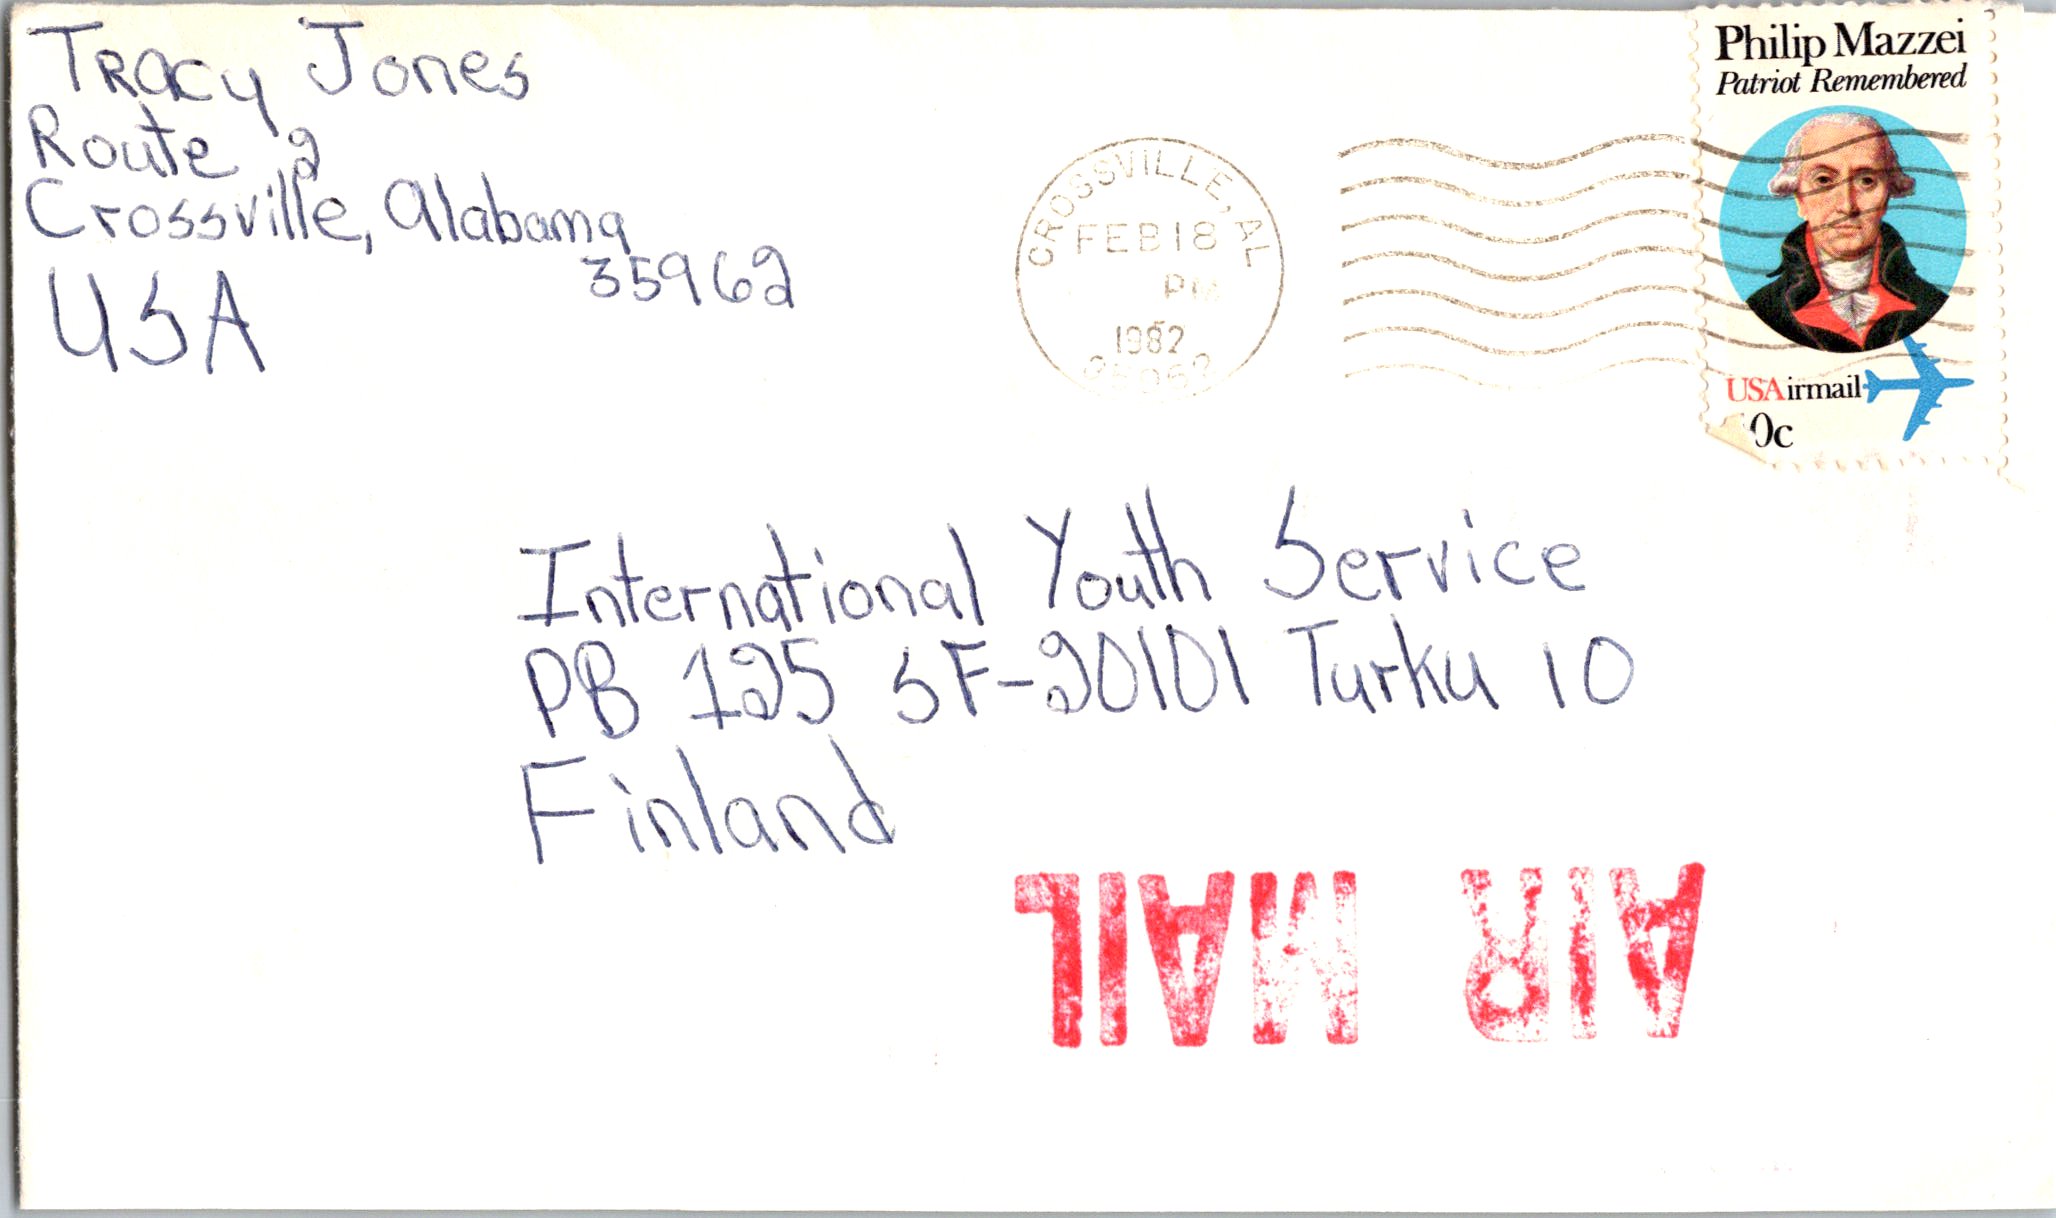 Tracy Jones
Route 2
Crossville, Alabama
35962
USA
CROSSVILLE, AL
FEB 18
PM
1982
Philip Mazzei
Patriot Remembered
USAirmail
0c
International Youth Service
PB 125 SF-20101 Turku 10
Finland
AIR MAIL